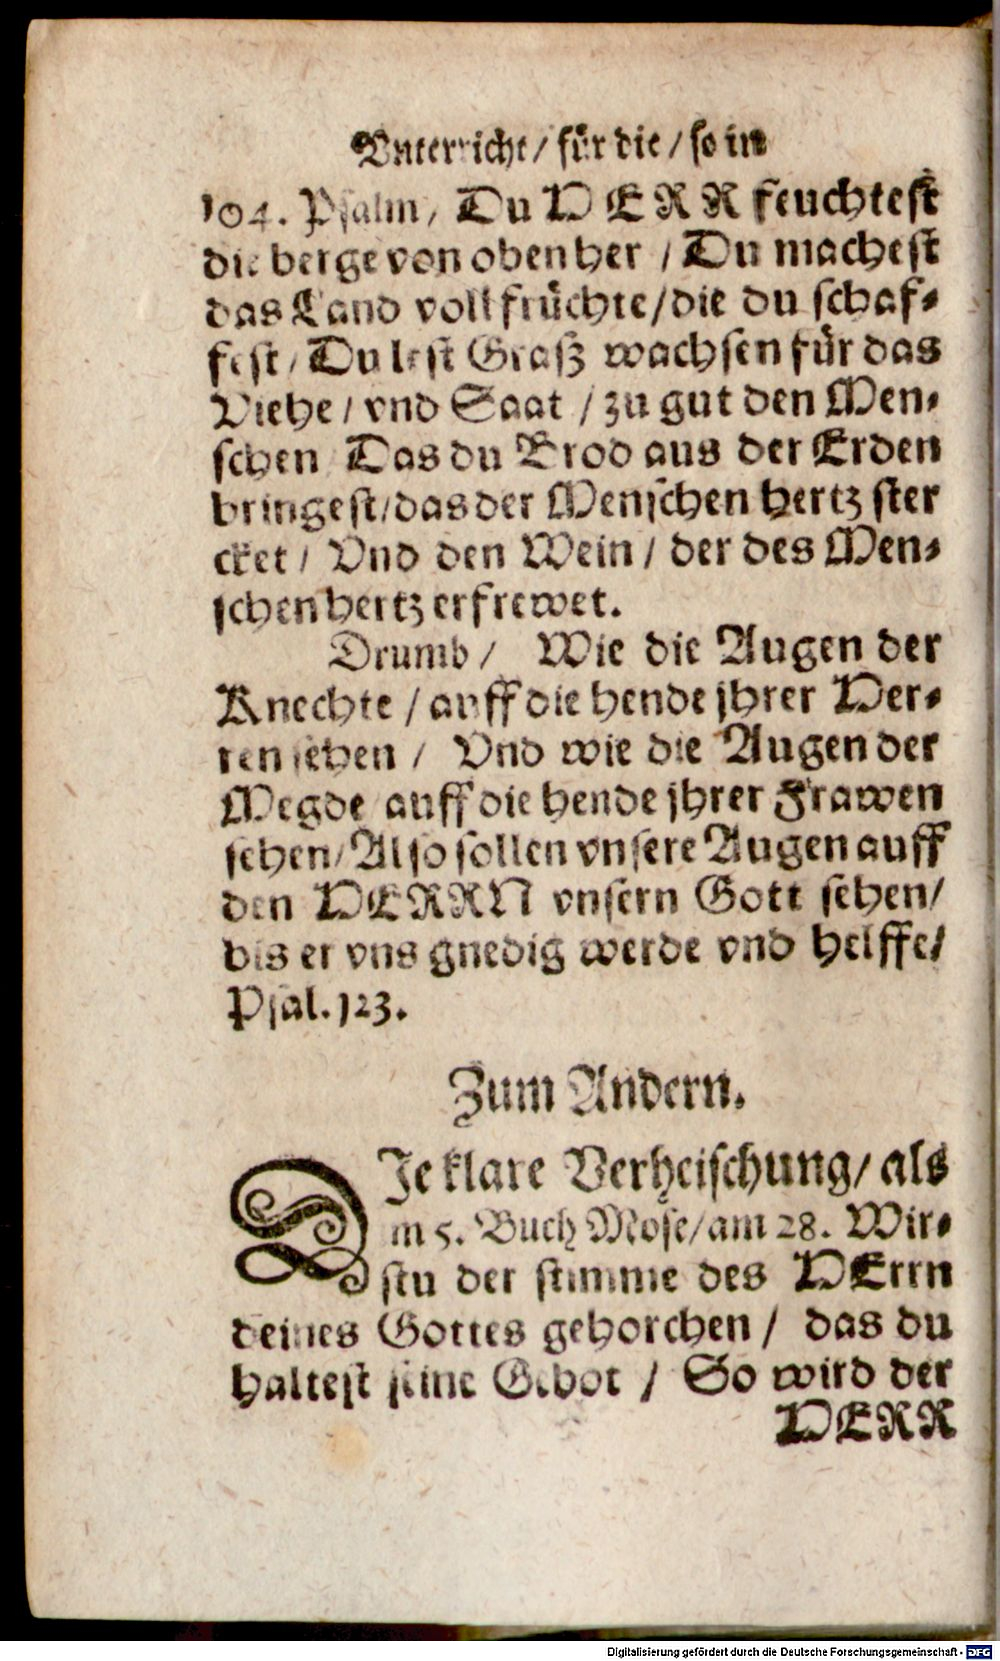 Vnterricht / für die / so in
104. Psalm / Du HERR feuchtest
die berge von oben her / Du machest
das Land voll früchte / die du schaf-
fest / Du lest Graß wachsen für das
Viehe / vnd Saat / zu gut den Men-
schen Das du Brod aus der Erden
bringest / das der Menschen hertz ster
cket / Vnd den Wein / der des Men-
schen hertz erfrewet.
Drumb / Wie die Augen der
Knechte / auff die hende jhrer Her-
ren sehen / Vnd wie die Augen der
Megde auff die hende jhrer Frawen
sehen / Also sollen vnsere Augen auff
den HERRN vnsern Gott sehen /
bis er vns gnedig werde vnd helffe /
Psal. 123.
Zum Andern.
DIe klare Verheischung / als
im 5. Buch Mose / am 28. Wir-
stu der stimme des HErrn
deines Gottes gehorchen / das du
haltest seine Gebot / So wird der
HERR
Digitalisierung gefördert durch die Deutsche Forschungsgemeinschaft - DFG